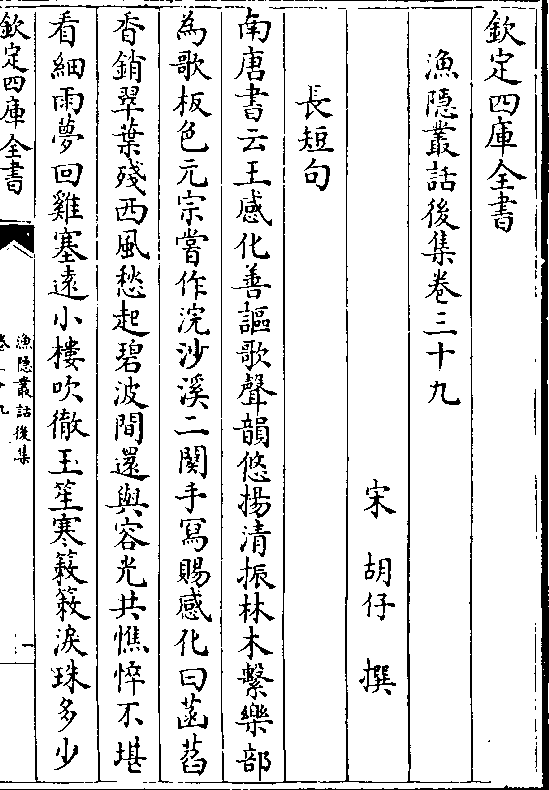 欽定四庫全書
漁隠叢話後集卷三十九
宋 胡仔 撰
長短句
南唐書云王感化善謳歌聲韻悠揚清振林木繫樂部
為歌板色元宗嘗作浣沙溪二闋手冩賜感化曰菡萏
香銷翠葉殘西風愁起碧波間還與容光共憔悴不堪
看細雨夢回雞塞逺小樓吹徹玉笙寒簌簌淚珠多少
欽定四庫全書
漁隠叢話後集
一